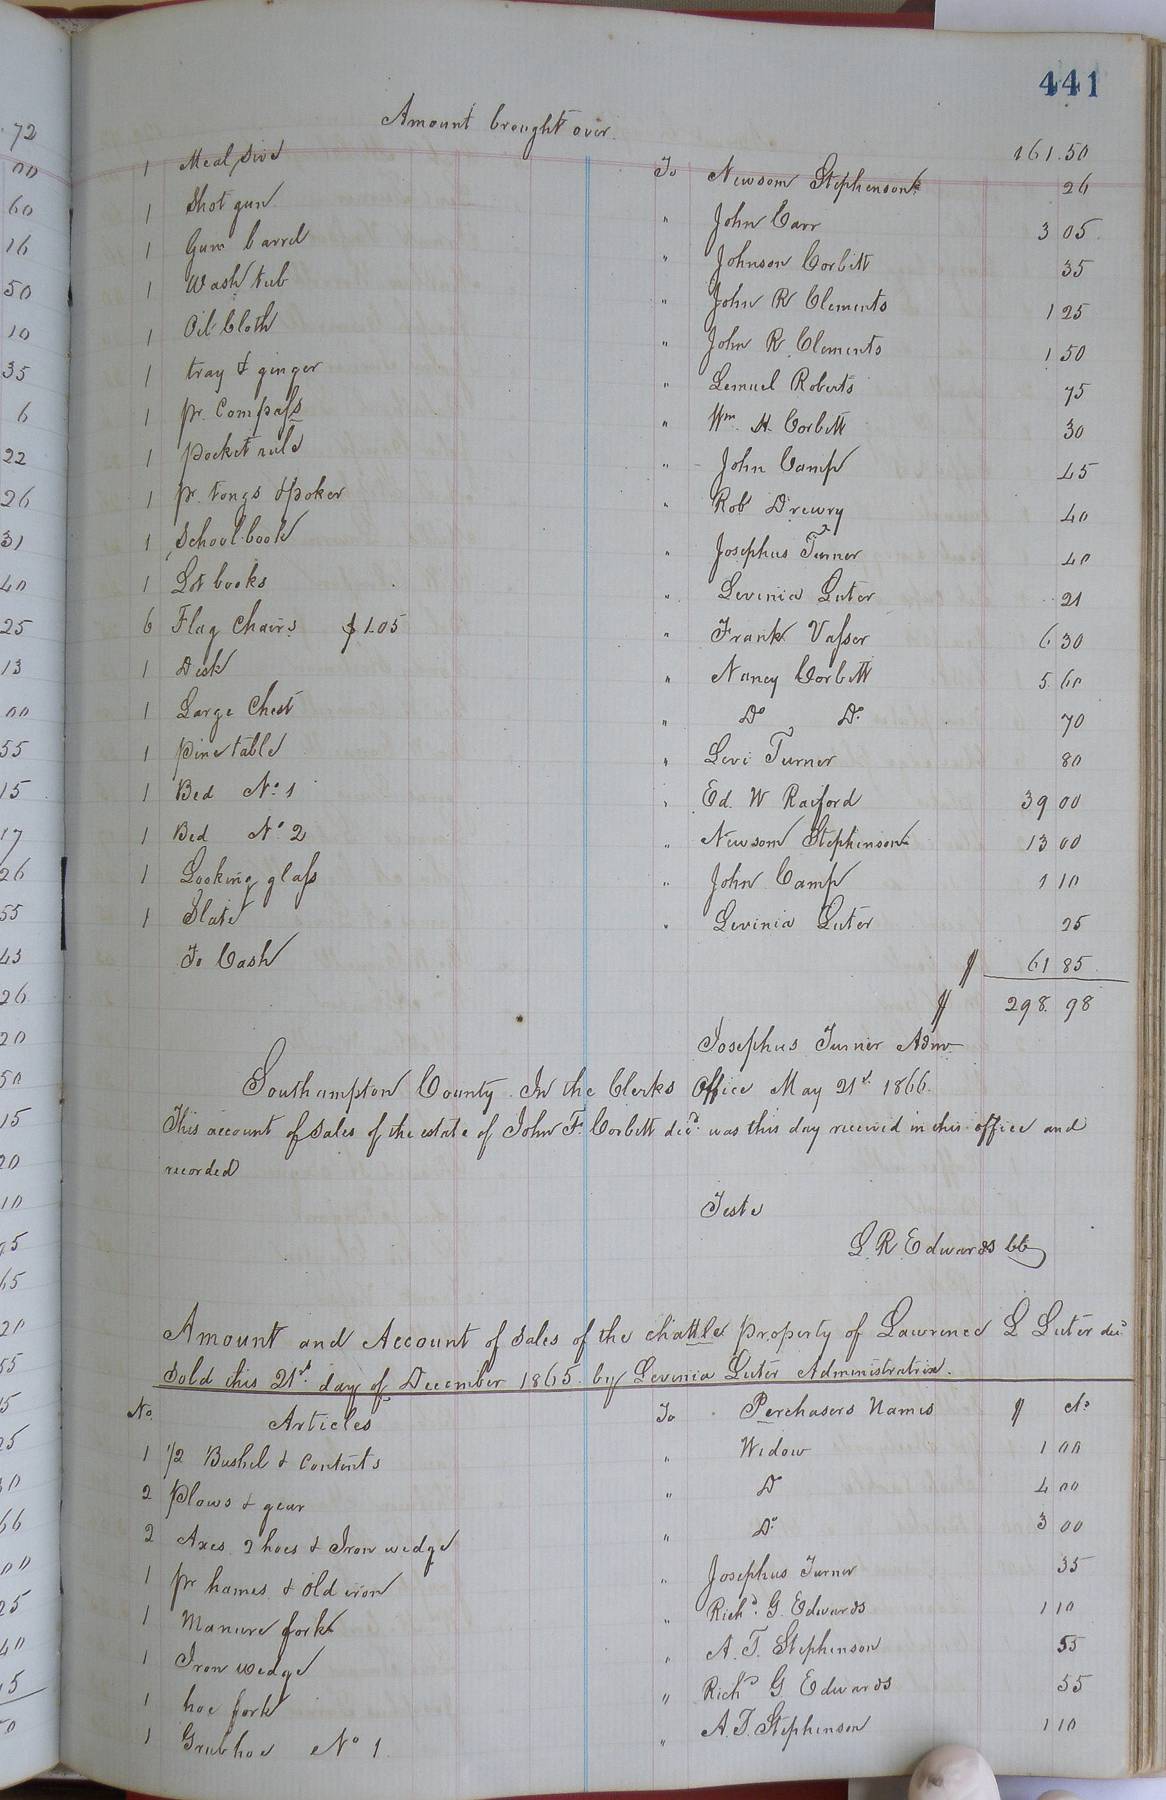 72
00
60
16
50
10
35
6
22
26
31
40
25
13
00
55
15
17
26
55
43
26
20
50
15
20
10
95
65
20
55
15
25
30
66
00
25
40
15
50
441
Amount brought over 161.50
1 Meal Sive To Newsom Stephenson 26
1 Shot gun " John Carr 3 05
1 Gun barrel " Johnson Corbitt 35
1 Wash tub " John R Clements 1 25
1 Oil Cloth " John R. Clements 1 50
1 tray & ginger " Lemuel Roberts 75
1 pr. Compass " Wm. H. Corbett 30
1 pocket rule " John Camp 45
1 pr. tongs & poker " Rob Drewry 40
1 School book " Josephus Turner 40
1 Lot books " Levinia Luter 21
6 Flag Chairs $1.05 " Frank Vasser 6 30
1 Desk " Nancy Corbett 5 60
1 Large Chest " Do Do 70
1 pine table " Levi Turner 80
1 Bed No. 1 " Ed. W Raiford 39 00
1 Bed No 2 " Newsom Stephenson 13 00
1 Looking glass " John Camp 1 10
1 Slate " Levinia Luter 25
To Cash $ 61 85
$ 298. 98
Josephus Turner Admr
Southampton County In the Clerks Office May 21st 1866.
This account of Sales of the estate of John F. Corbett decd. was this day received in this office and
recorded
Teste
L. R. Edwards CC
Amount and Account of Sales of the chattle property of Lawrence L Luter decd
Sold this 21st day of December 1865 by Levinia Luter Administratrix.
No. Articles To Perchasers Names $ cts
1 1/2 Bushel & Contents " Widow 1 00
2 Plows & gear " Do 4 00
2 Axes 2 hoes & Iron wedge " Do 3 00
1 pr hames & Old iron " Josephus Turner 35
1 Manure fork " Richd. G. Edwards 1 10
1 Iron wedge " A. T. Stephenson 55
1 hoe fork " Richd G Edwards 55
1 Grubhoe No 1. " A. T. Stephenson 1 10